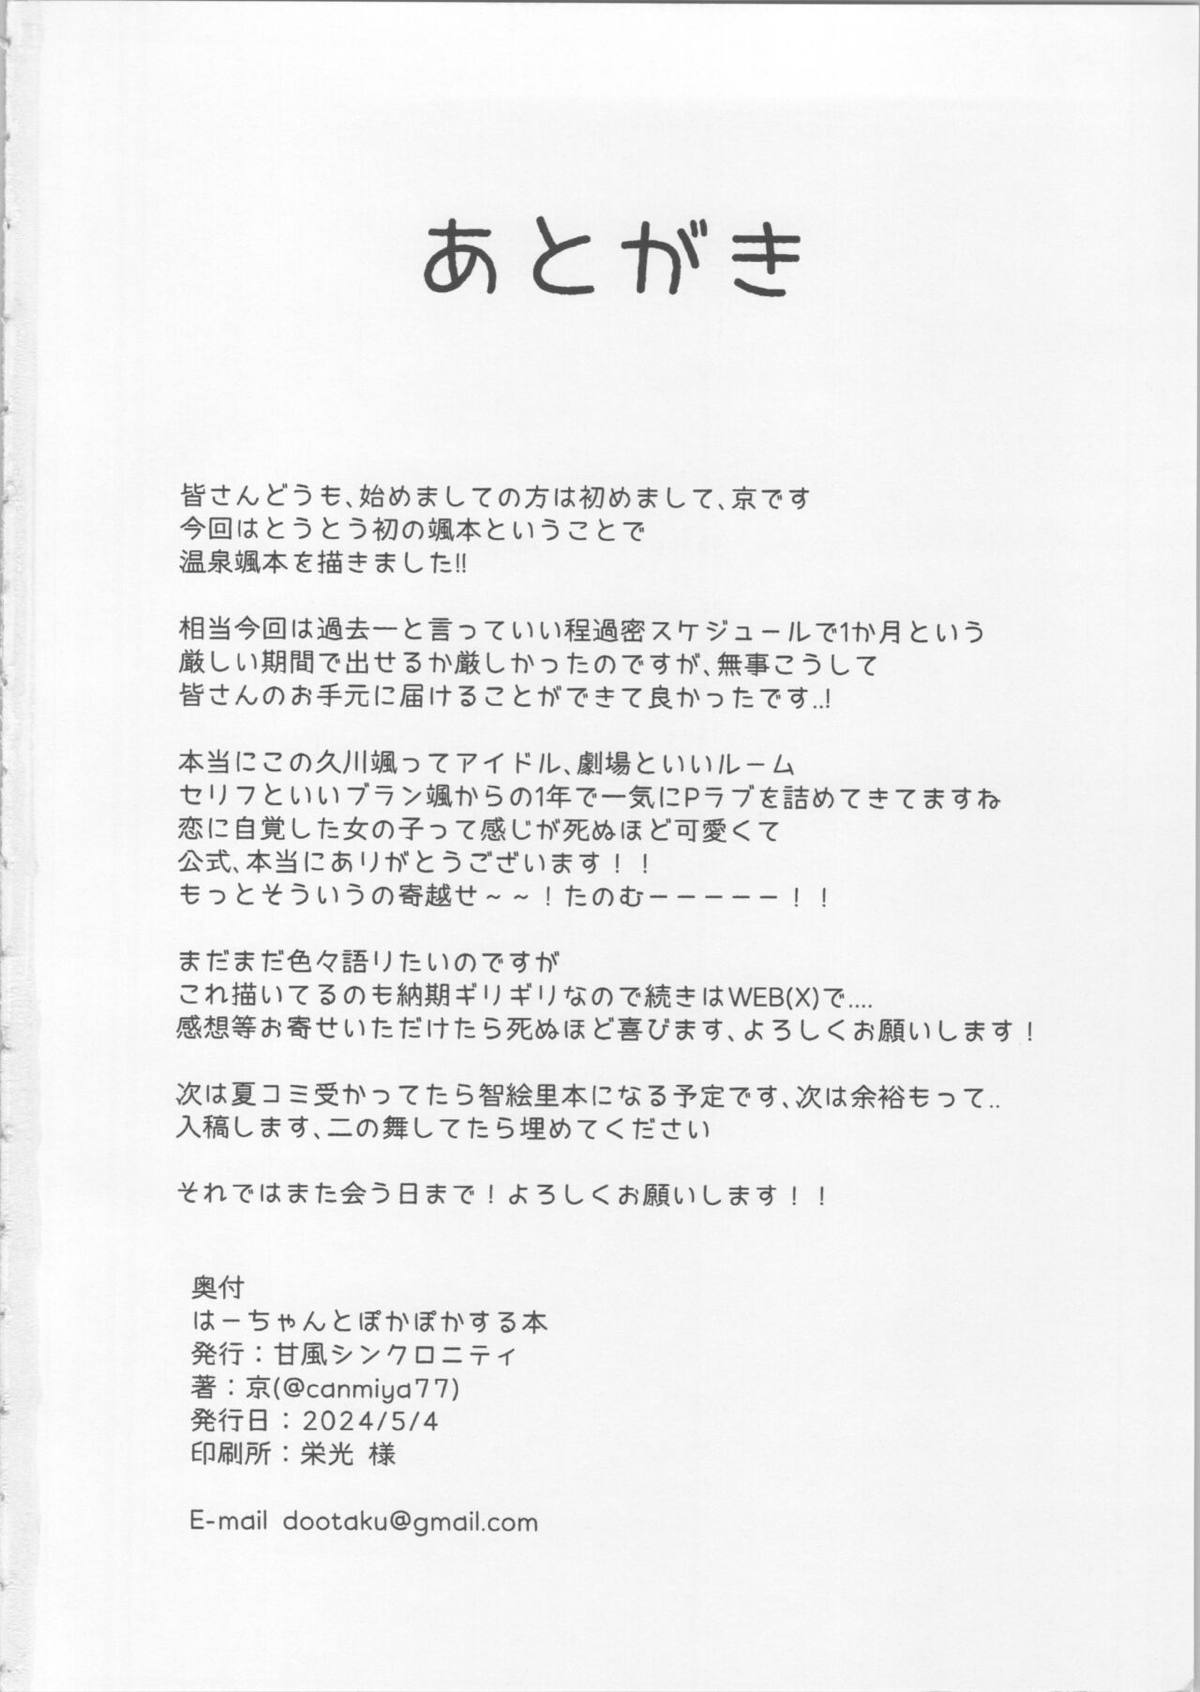 あとがき
皆さんどうも、始めましての方は初めまして、京です
今回はとうとう初の颯本ということで
温泉颯本を描きました!!
相当今回は過去一と言っていい程過密スケジュールで1か月という
厳しい期間で出せるか厳しかったのですが、無事こうして
皆さんのお手元に届けることができて良かったです..!
本当にこの久川颯ってアイドル、劇場といいルーム
セリフといいブラン颯からの1年で一気にPラブを詰めてきてますね
恋に自覚した女の子って感じが死ぬほど可愛くて
公式、本当にありがとうございます！！
もっとそういうの寄越せ～～！たのむーーーーー！！
まだまだ色々語りたいのですが
これ描いてるのも納期ギリギリなので続きはWEB(X)で....
感想等お寄せいただけたら死ぬほど喜びます、よろしくお願いします！
次は夏コミ受かってたら智絵里本になる予定です、次は余裕もって..
入稿します、二の舞してたら埋めてください
それではまた会う日まで！よろしくお願いします！！
奥付
はーちゃんとぽかぽかする本
発行：甘風シンクロニティ
著：京(@canmiya77)
発行日：2024/5/4
印刷所：栄光 様
E-mail dootaku@gmail.com